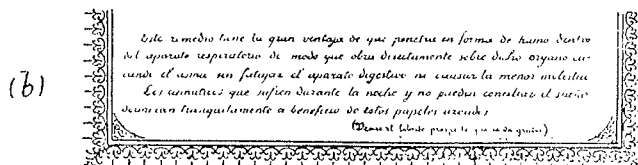 (b)
Este remedio tiene la gran ventaja de que penetra en forma de humo dentro
del aparato respiratorio de modo que obra directamente sobre dicho organo cu-
rando el asma sin fatigar el aparato digestivo ni causar la menor molestia
Los asmaticos que sufren durante la noche y no puedan conciliar el sueño
dormiran tranquilamente a beneficio de estos papeles azoados
(Vease el